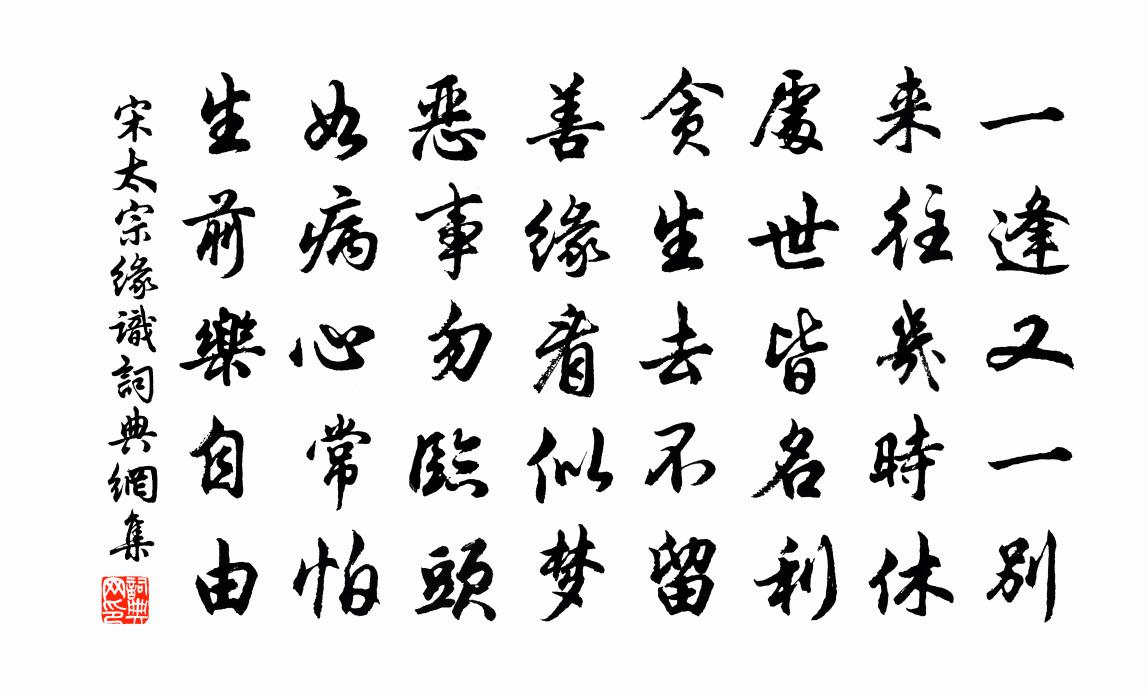 一逢又一別
来往幾時休
處世皆名利
貪生去不留
善缘看似梦
惡事勿臨頭
如病心常怕
生前樂自由
宋太宗缘識詞典網集
詞典
网印